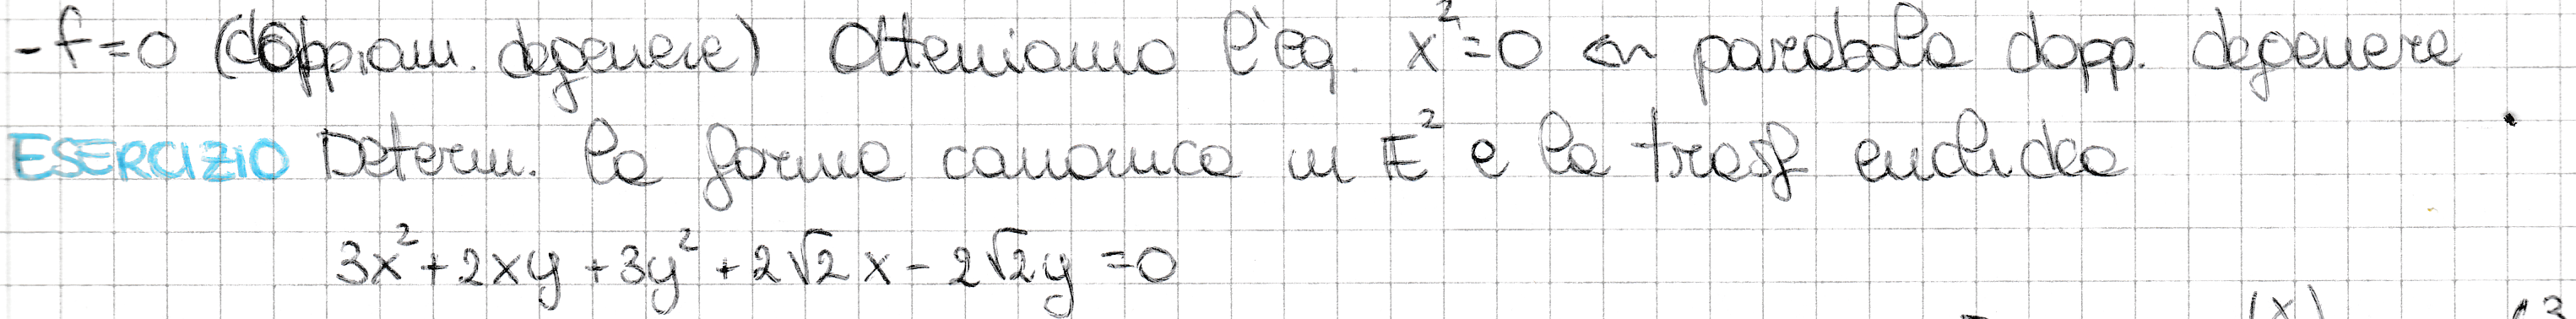 -f=0 (doppiam. degenere) Otteniamo l'eq. x²=0 ← parabola dopp. degenere
ESERCIZIO Determ. la forma canonica in E² e la trasf euclidea
3x²+2xy+3y²+2√2x-2√2y=0